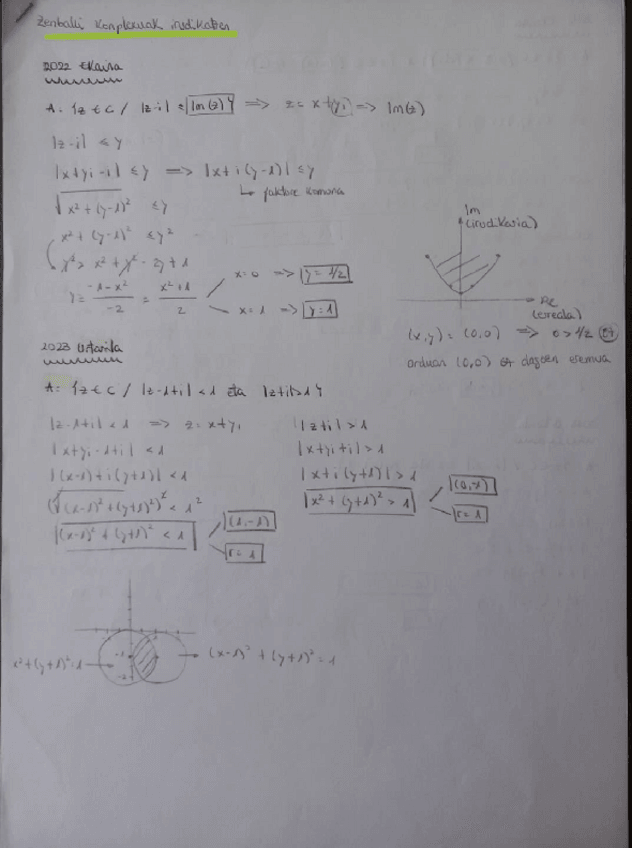 Zenbaki konplexuak irudikatzen
2022 Ekaina
A = {z ∈ C / |z-i| ≤ Im(z)} ⇒ z = x+yi ⇒ Im(z)
|z-i| ≤ y
|x+yi-i| ≤ y ⇒ |x+i(y-1)| ≤ y
↳ faktore komuna
√x²+(y-1)² ≤ y
x² + (y-1)² ≤ y²
y² ≥ x² + y² - 2y + 1
y = -1-x² / -2 = x²+1 / 2
x=0 ⇒ y = 1/2
x=1 ⇒ y=1
Im
(irudikaria)
Re
(erreala)
(x,y) = (0,0) ⇒ 0 > 1/2 Ez
orduan (0,0) ez dagoen eremua
2023 Urtarrila
A = {z ∈ C / |z-1+i| < 1 eta |z+i| > 1}
|z-1+i| < 1 ⇒ z = x+yi
|x+yi-1+i| < 1
|(x-1)+i(y+1)| < 1
(√(x-1)²+(y+1)²)² < 1²
(x-1)² + (y+1)² < 1
(1,-1)
r = 1
|z+i| > 1
|x+yi+i| > 1
|x+i(y+1)| > 1
x² + (y+1)² > 1
(0,-1)
r = 1
x²+(y+1)²=1
-1
-2
(x-1)² + (y+1)² = 1